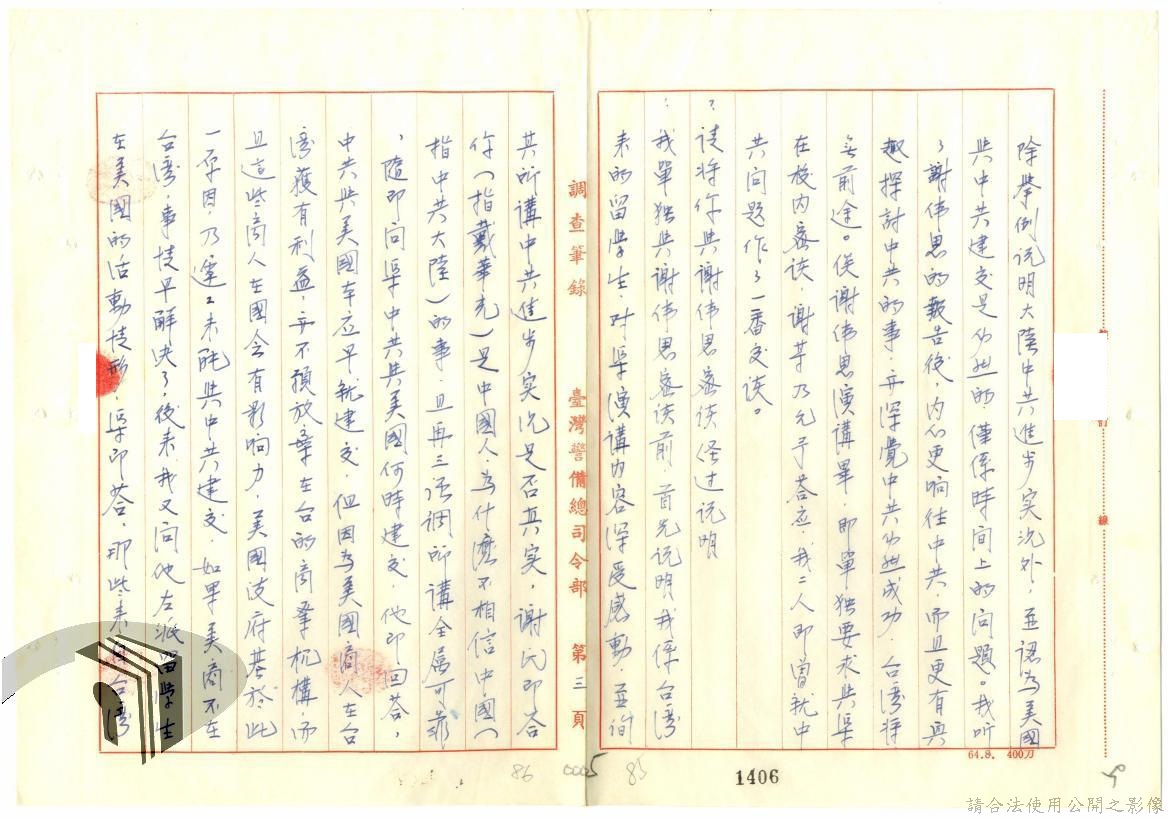 除舉例说明大陸中共進步実况外，並認為美國
與中共建交是必然的，僅係時间上的问題。我听
了謝偉思的報告後，內心更响往中共，而且更有興
趣探討中共的事，並深覺中共必然成功，台湾将
無前途。俟謝偉思演講畢，即單独要求與渠
在校内密谈，謝某乃允予答应，我二人即曾就中
共问題作了一番交谈。
？请将你與謝偉思密谈经过说明
：我單独與謝偉思密谈前，首先说明我係台湾
来的留学生，对渠演講内容深受感動，並询
調查筆錄 臺灣警備總司令部 第三頁
其所講中共進步实况是否真实，谢氏即答
你（指戴華光）是中國人，為什麼不相信中國（
指中共大陸）的事，且再三强調所講全屬可靠
，隨即问渠中共與美國何時建交，他即回答，
中共與美國本应早就建交，但因為美國商人在台
湾獲有利益，並不願放棄在台的商業机構，而
且這些商人在國会有影响力，美國政府基於此
一原因，乃遲遲未能與中共建交，如果美商不在
台湾，事情早解决了，後来我又问他左派留学生
在美國的活動情形，渠即答，那些来自台湾
線
64.8. 400刀
86 0005 85
1406
請合法使用公開之影像